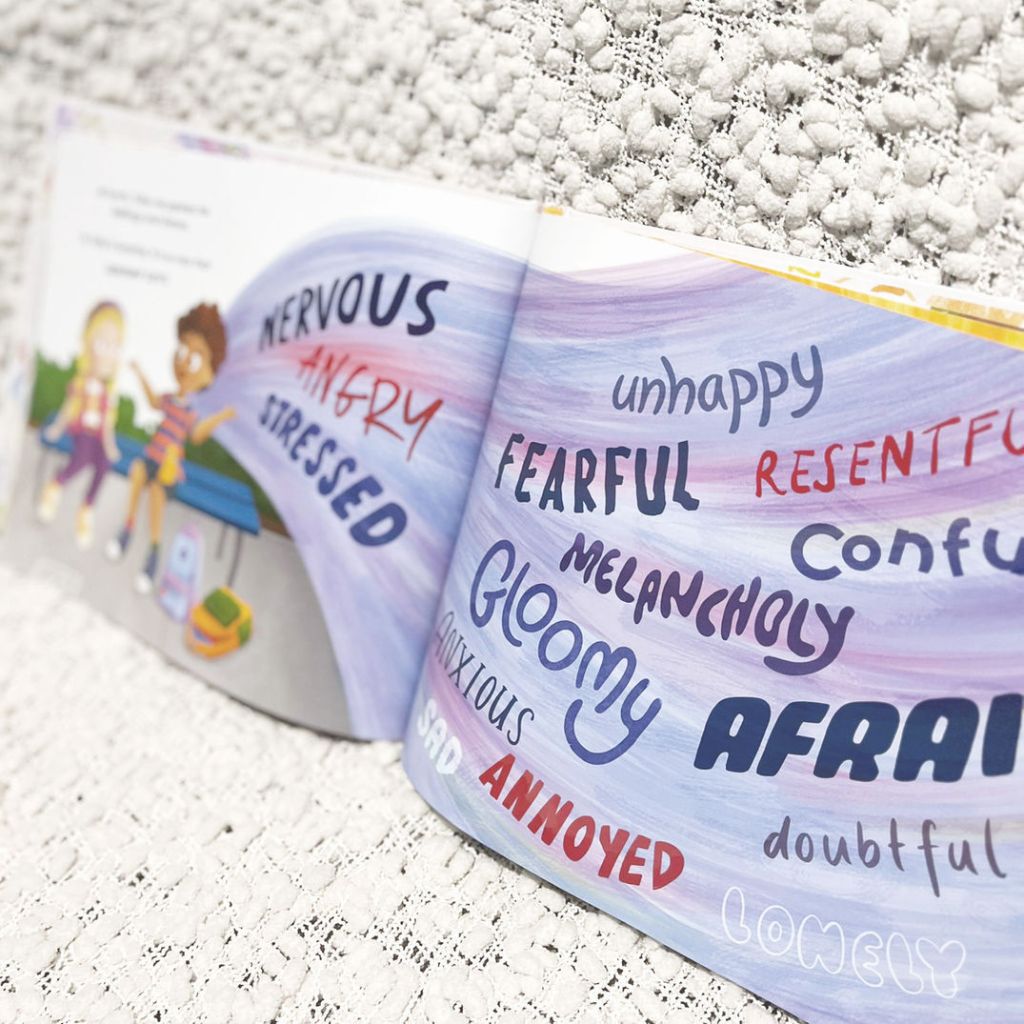 NERVOUS
ANGRY
STRESSED
unhappy
FEARFUL
RESENTFU
Confu
MELANCHOLY
GLOOMY
ANXIOUS
SAD
AFRAI
ANNOYED
doubtful
LONELY